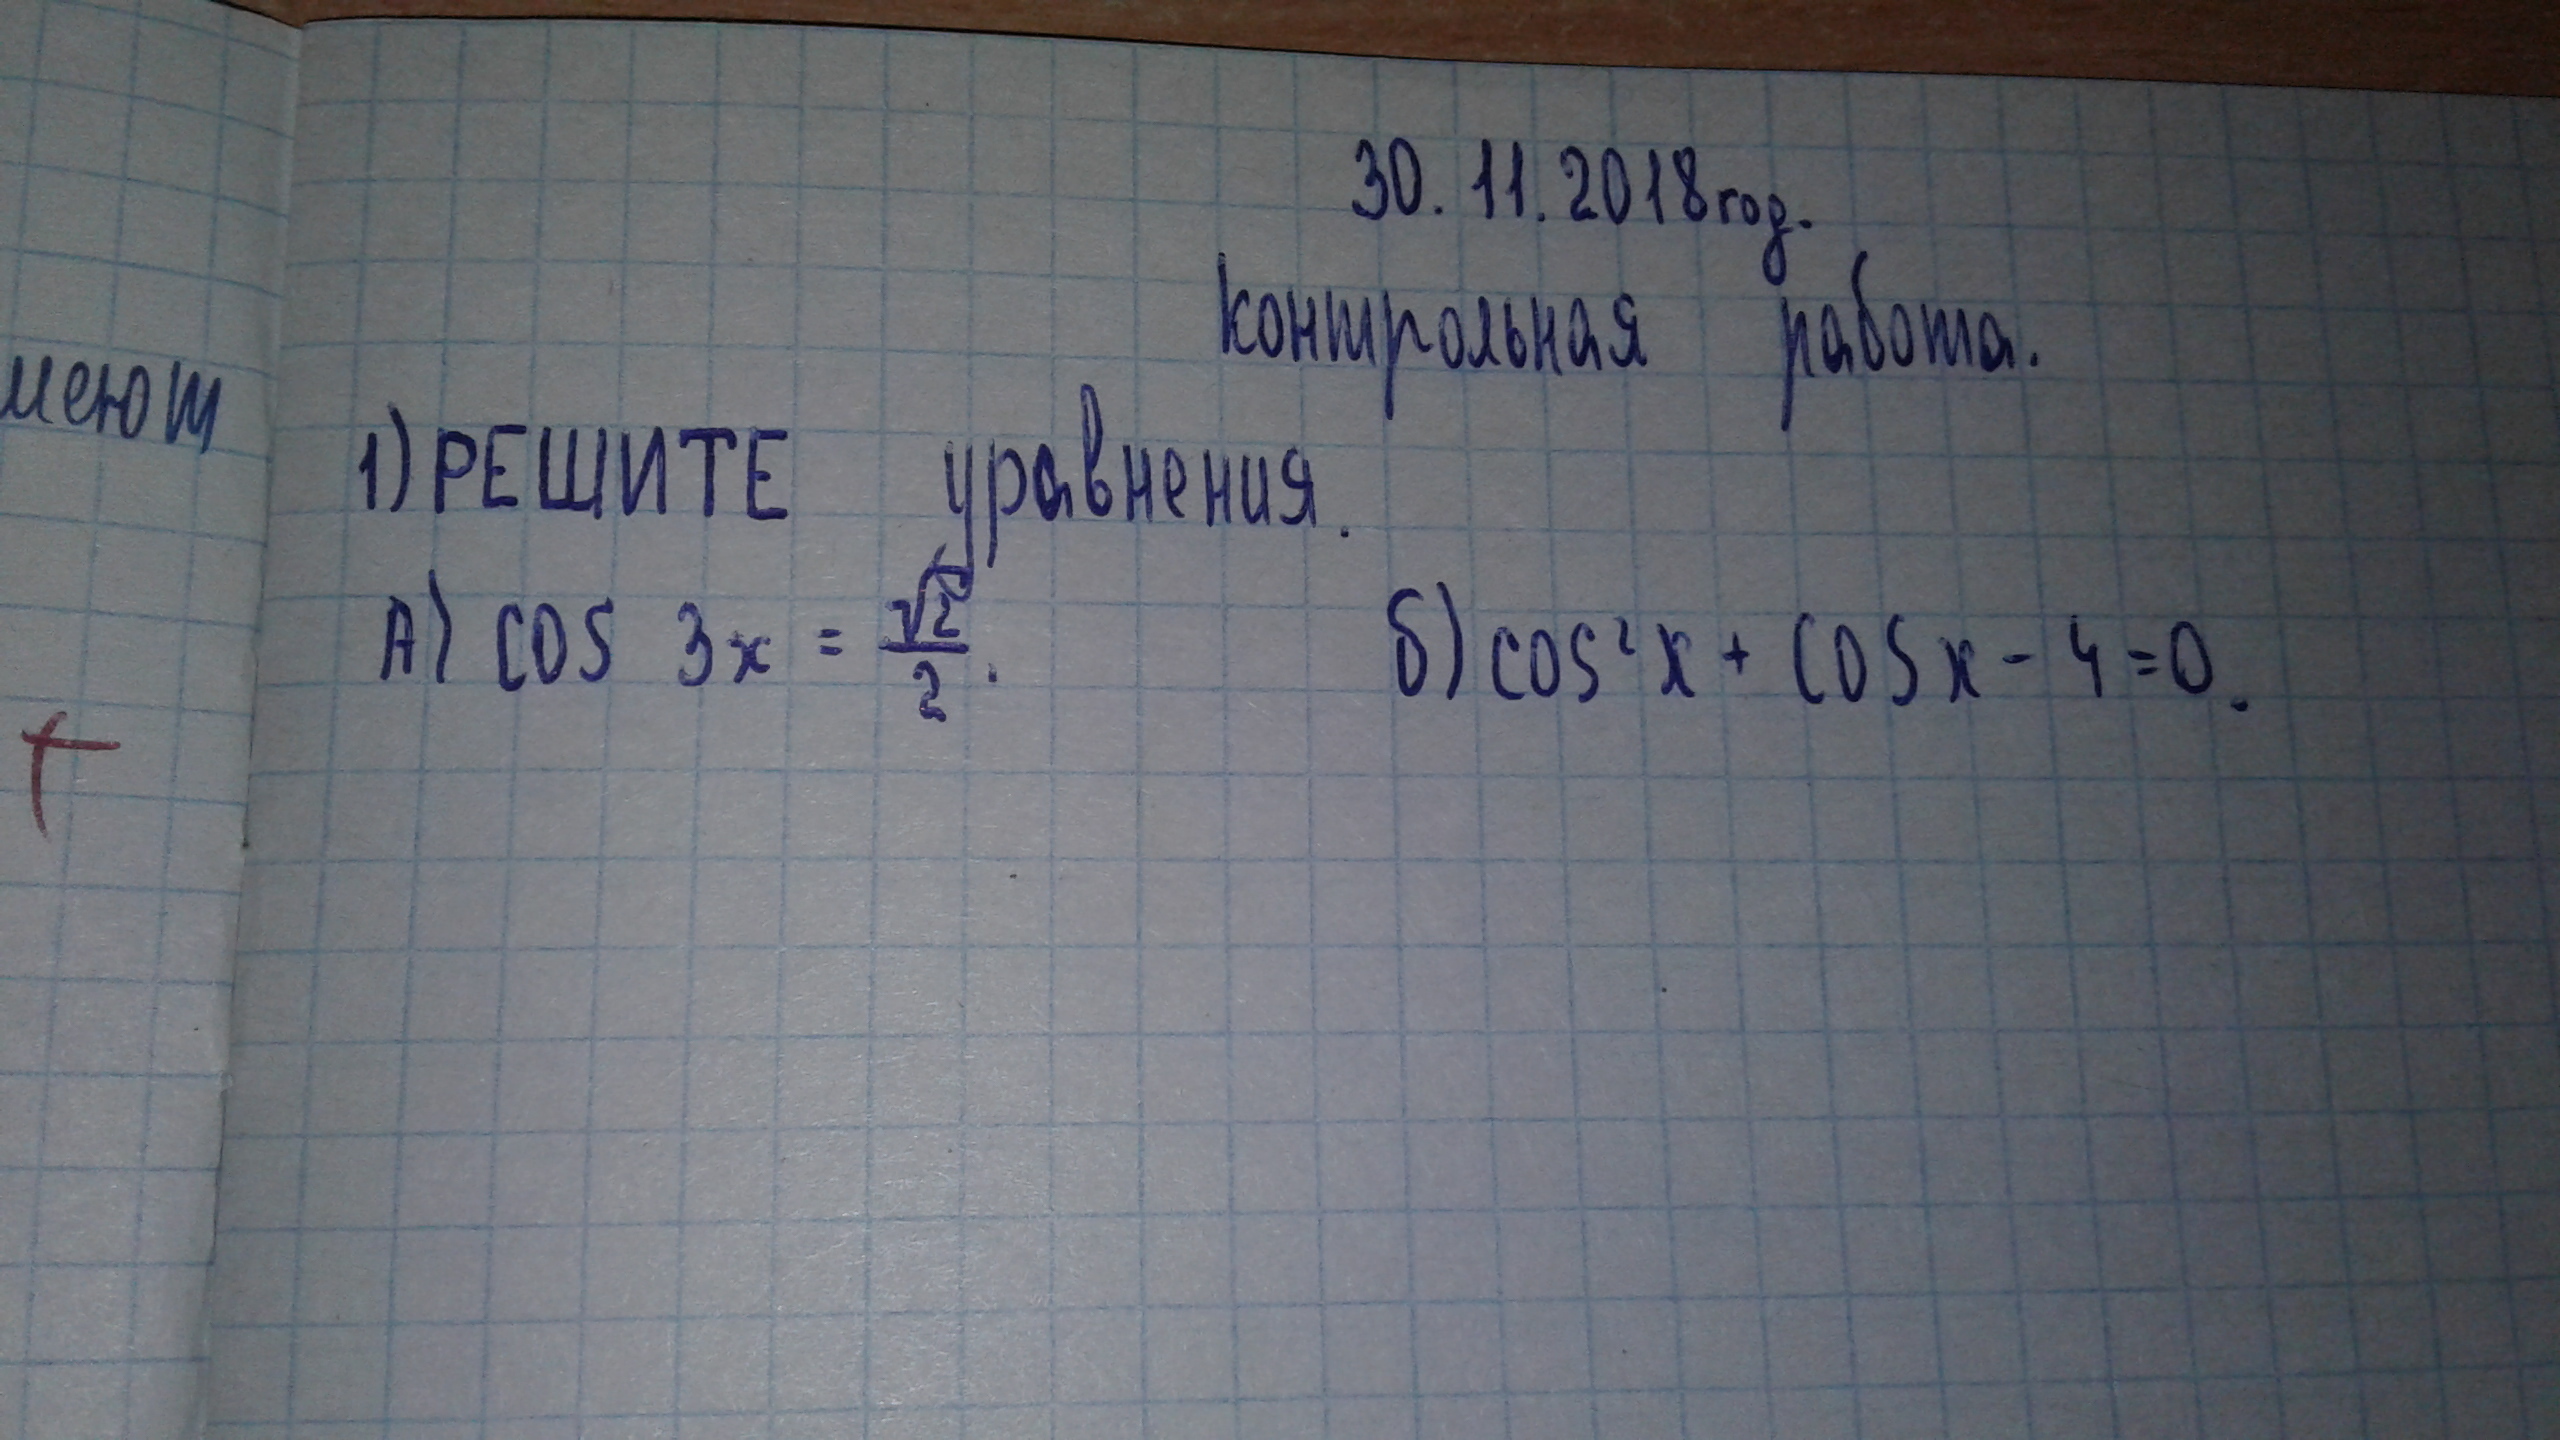 30.11.2018год.
контрольная работа.
меют
1) РЕШИТЕ уравнения.
А) cos 3x = √2/2. б) cos²x + cosx - 4 = 0.